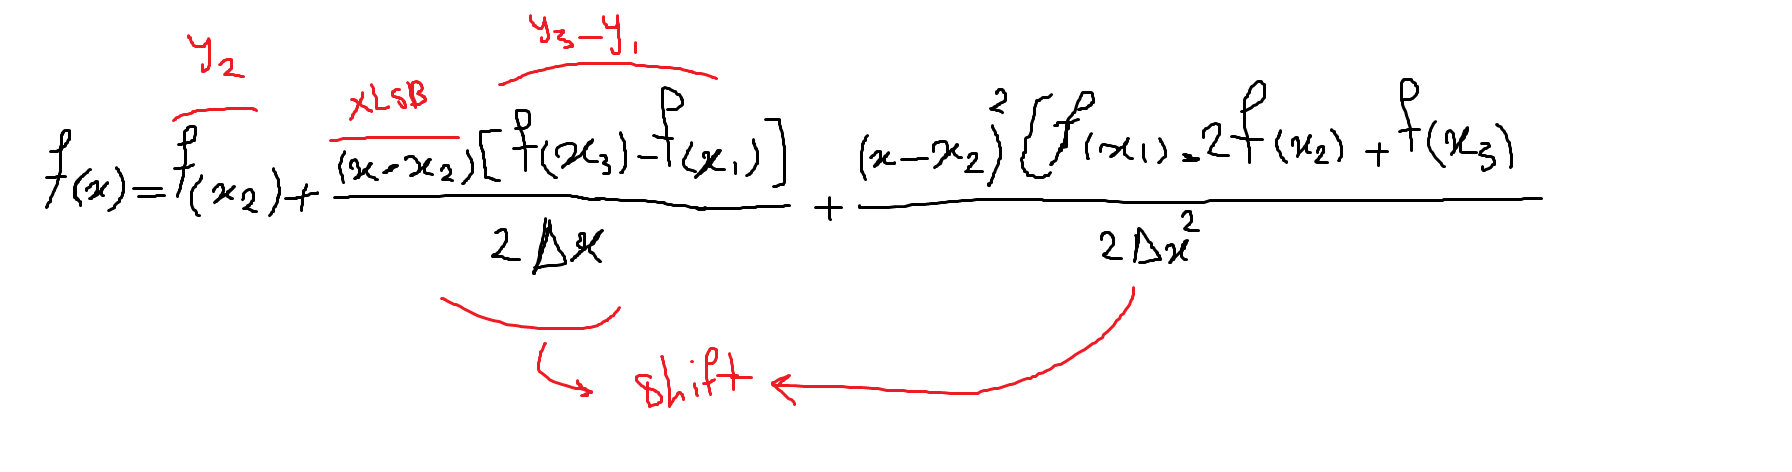 y₂ y₃-y₁
xLSB
f(x)=f(x₂)+ (x-x₂)[f(x₃)-f(x₁)] / 2Δx + (x-x₂)²[f(x₁)-2f(x₂)+f(x₃) / 2Δx²
shift